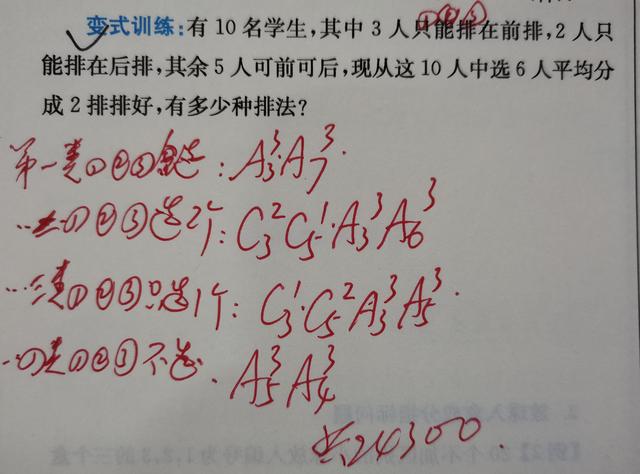 ①②③
变式训练:有10名学生,其中3人只能排在前排,2人只
能排在后排,其余5人可前可后,现从这10人中选6人平均分
成2排排好,有多少种排法?
第一类①②③全选:A₃³A₇³.
二类①②③选2个:C₃²C₅¹·A₃³A₆³
三类①②③只选1个:C₃¹·C₅²A₃³A₅³.
四类①②③不选.A₅³A₄³
共24300.